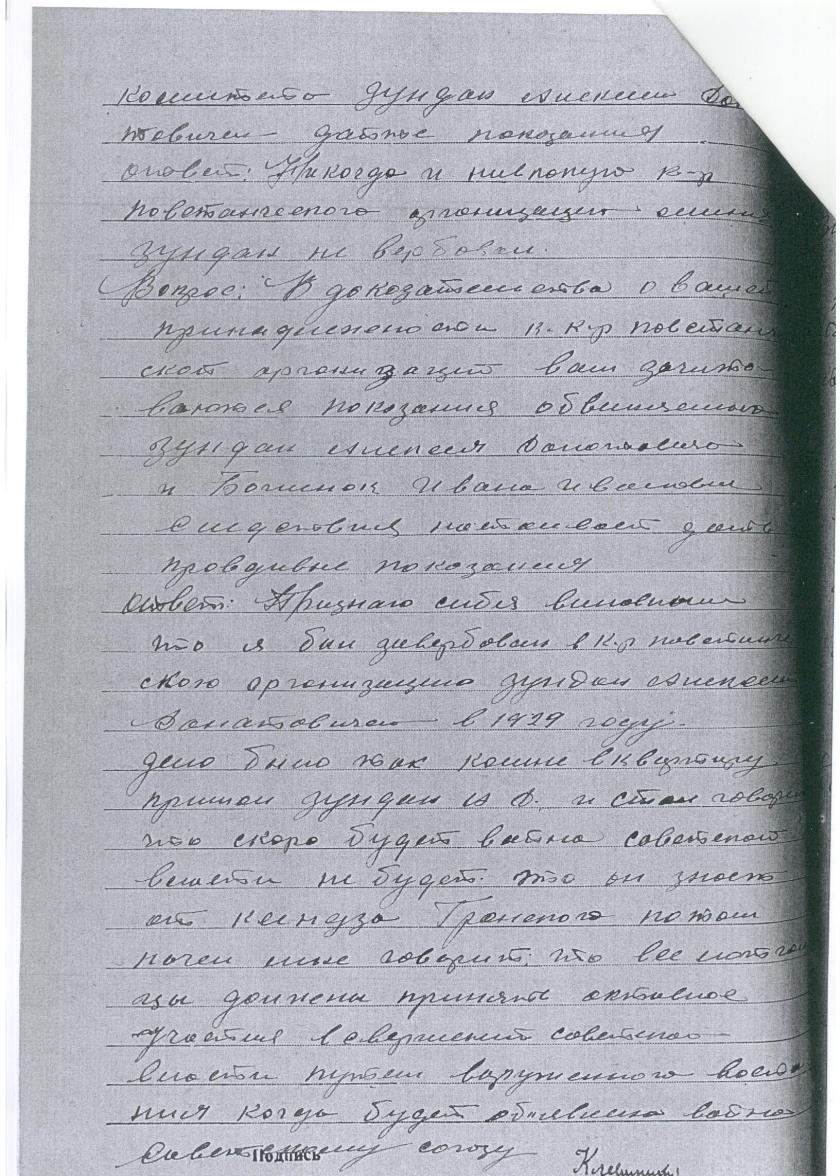 комитета Зундан Алексеем До
товичем данное показания
ответ: Никогда и никакую к-р
повстанческого организации меня
Зундан не вербовал.
Вопрос: В доказательства о вашей
принадлежности к к-р повстан
ской организаций вам зачиты
ваются показания обвиняемого
Зундан Алексея Донатовича
и Иван Ивановича
Следствия настаивает дать
правдивые показания
Ответ: Признаю себя виновным
что я был завербован в к-р повстанче
скою организацию Зундан Алексеем
Донатовичем в 1929 году.
дело было так ко мне в квартиру
пришол Зундан А Д. и стал говорит
что скоро будет война советской
власти не будет. это он знает
от ксендза потом
начел мне говорит, что все
цы должны принять активное
участия в свержений советской
власти путем воруженного восста
ния когда будет объявлена война
советскому союзу
Подпись